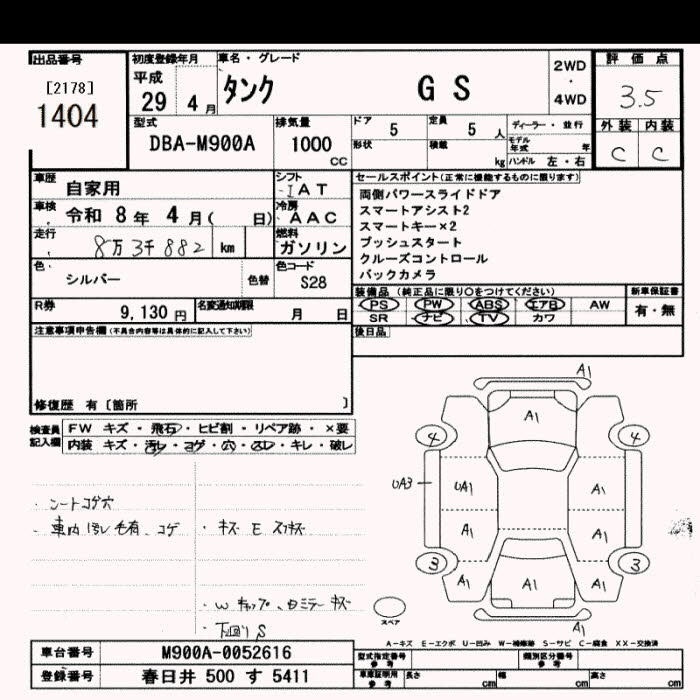 出品番号 初度登録年月 車名・グレード 2WD・4WD 評価点
[2178]
1404
平成 29 4月
タンク GS
3.5
外装 内装
C C
型式
DBA-M900A
排気量
1000 CC
ドア 5
定員 5人
ディーラー・並行
形状 積載 kg
モデル年式 年
ハンドル 左・右
車歴 自家用
シフト IAT
車検 令和8年 4月( 日)
冷房 AAC
走行 8万3千882 km
燃料 ガソリン
色 シルバー 色替
色コード S28
R券 9,130円
名変通知期限 月 日
セールスポイント(正常に機能するものに限ります)
両側パワースライドドア
スマートアシスト2
スマートキー×2
プッシュスタート
クルーズコントロール
バックカメラ
装備品(純正品に限り○をつけてください)
新車保証書
PS PW ABS エアB AW
SR ナビ TV カワ
有・無
後日品
注意事項申告欄(不具合内容等は具体的に記入して下さい)
修復歴 有〔箇所 〕
検査員記入欄
FW キズ・飛石・ヒビ割・リペア跡・×要
内装 キズ・汚レ・コゲ・穴・スレ・キレ・破レ
・シートコゲ穴
・車内 汚レ 毛有、コゲ
・キズ E スリキズ
・W キャップ、Dミラー キズ
・下回り S
A1
A1
4 4
UA3 UA1 A1
A1 A1
3 3
A1 A1 A1
A1
スペア
A-キズ E-エクボ U-凹み W-補修跡 S-サビ C-腐食 XX-交換済
車台番号 M900A-0052616
型式指定番号 参考
類別区分番号 参考
登録番号 春日井 500 す 5411
車庫証明用 参考
長さ cm 幅 cm 高さ cm